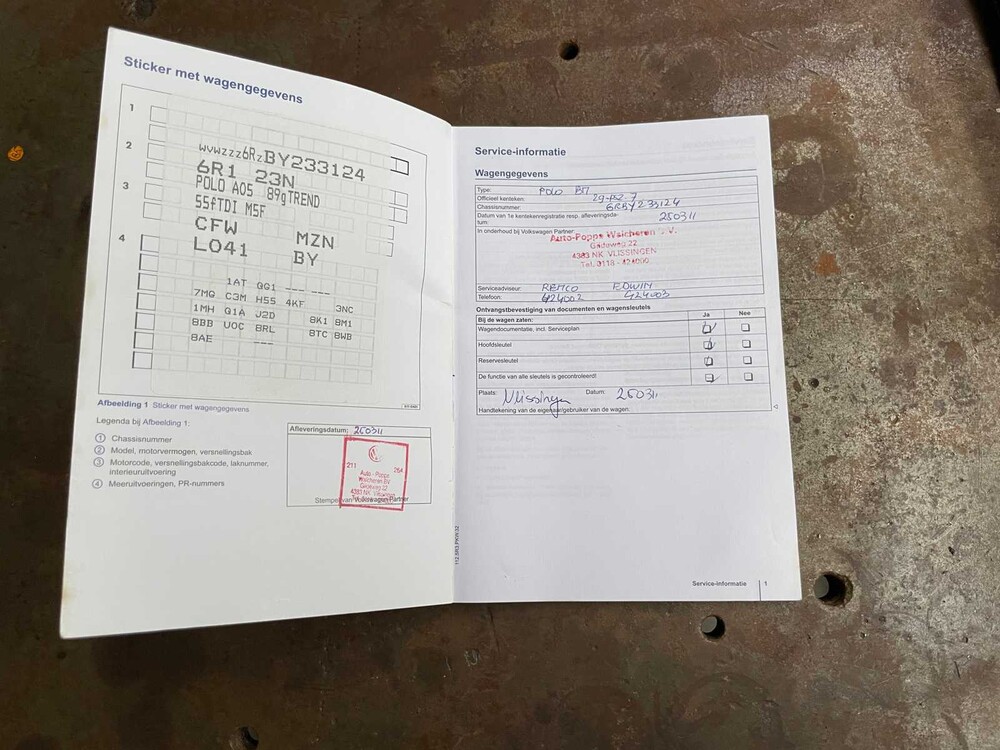 Sticker met wagengegevens
1
2
3
4
WVWZZZ6RZBY233124
6R1 23N
POLO A05 89gTREND
55fTDI M5F
CFW MZN
L041 BY
1AT GG1 --- ---
7MG C3M H5S 4KF 3NC
1MH G1A J2D 8K1 8M1
8BB U0C 8RL 8TC 8WB
8AE ---
Afbeelding 1 Sticker met wagengegevens
Legenda bij Afbeelding 1:
1 Chassisnummer
2 Model, motorvermogen, versnellingsbak
3 Motorcode, versnellingsbakcode, laknummer,
interieuruitvoering
4 Meeruitvoeringen, PR-nummers
Afleveringsdatum: 250311
211 26A
Auto - Popps
Walcheren BV
Gildeweg 22
4383 NK Vlissingen
Stempel van Volkswagen Partner
Service-informatie
Wagengegevens
Type: POLO
Officieel kenteken:
Chassisnummer: 6RBY233124
Datum van 1e kentekenregistratie resp. afleveringsda-
tum: 250311
In onderhoud bij Volkswagen Partner:
Auto-Popps Walcheren B.V.
Gildeweg 22
4383 NK VLISSINGEN
Tel. 0118 - 424000
Serviceadviseur: REMCO EDWIN
Telefoon: 424002 424003
Ontvangstbevestiging van documenten en wagensleutels
Bij de wagen zaten: Ja Nee
Wagendocumentatie, incl. Serviceplan
Hoofdsleutel
Reservesleutel
De functie van alle sleutels is gecontroleerd!
Plaats: Vlissingen Datum: 250311
Handtekening van de eigenaar/gebruiker van de wagen.
112.5R3.PKW.32
Service-informatie 1